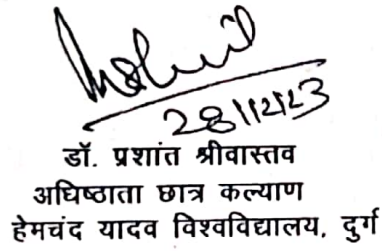 28/12/23
डॉ. प्रशांत श्रीवास्तव
अधिष्ठाता छात्र कल्याण
हेमचंद यादव विश्वविद्यालय, दुर्ग